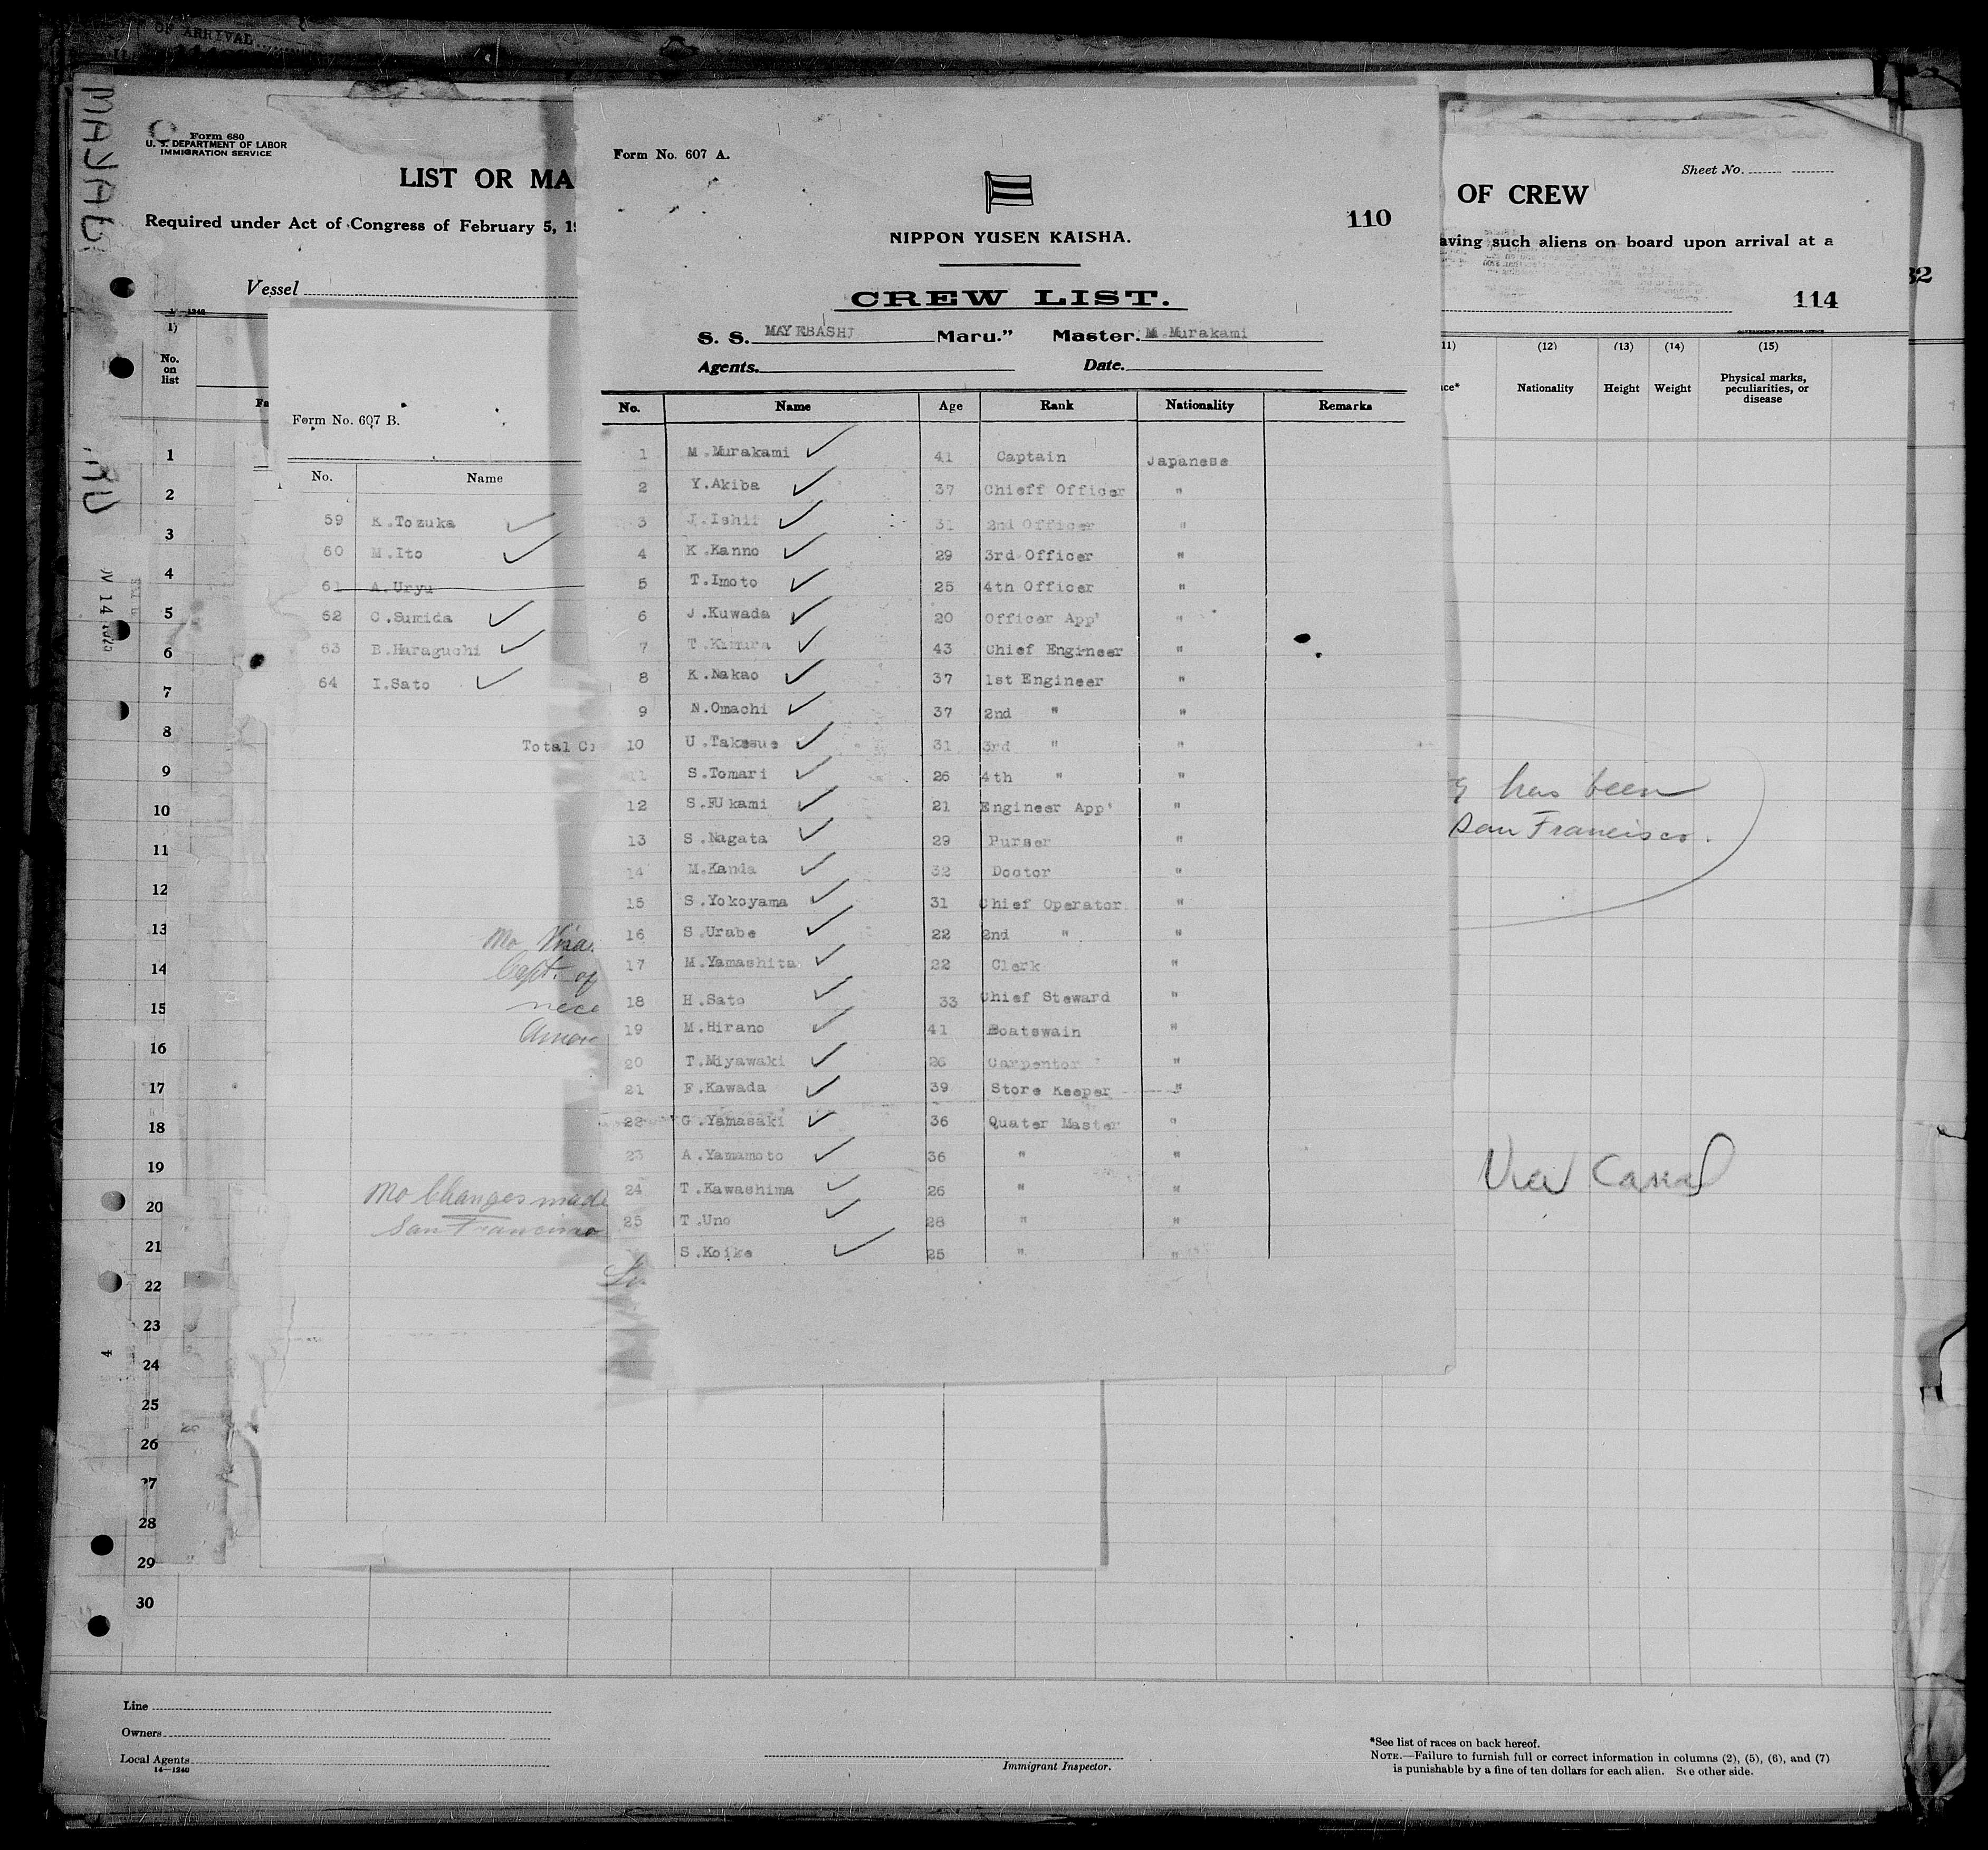 OF ARRIVAL
Form 680
U. S. DEPARTMENT OF LABOR
IMMIGRATION SERVICE
LIST OR MA
Required under Act of Congress of February 5, 19
Vessel
No.
on
list
1
2
3
4
5
6
7
8
9
10
11
12
13
14
15
16
17
18
19
20
21
22
23
24
25
26
27
28
29
30
Line
Owners
Local Agents
14—1240
Form No. 607 B.
No. Name
59 K.Tozuka
60 M.Ito
61 A.Uryu
62 C.Sumida
63 B.Haraguchi
64 I.Sato
Total C
No Visa.
Capt. of
nece
No Changes made
San Francisco
Form No. 607 A.
110
NIPPON YUSEN KAISHA.
CREW LIST.
S. S. MAYEBASHI Maru." Master. M.Murakami
Agents. Date.
No. Name Age Rank Nationality Remarks
1 M.Murakami 41 Captain Japanese
2 Y.Akiba 37 Chieff Officer "
3 J.Ishii 31 2nd Officer "
4 K.Kanno 29 3rd Officer "
5 T.Imoto 25 4th Officer "
6 J.Kuwada 20 Officer App' "
7 T.Kimura 43 Chief Engineer "
8 K.Nakao 37 1st Engineer "
9 N.Omachi 37 2nd " "
10 U.Takesue 31 3rd " "
11 S.Tomari 26 4th " "
12 S.FUkami 21 Engineer App' "
13 S.Nagata 29 Purser "
14 M.Kanda 32 Doctor "
15 S.Yokoyama 31 Chief Operator "
16 S.Urabe 22 2nd " "
17 M.Yamashita 22 Clerk "
18 H.Sato 33 Chief Steward "
19 M.Hirano 41 Boatswain "
20 T.Miyawaki 26 Carpentor "
21 F.Kawada 39 Store Keeper "
22 G.Yamasaki 36 Quater Master "
23 A.Yamamoto 36 " "
24 T.Kawashima 26 " "
25 T.Uno 28 " "
S.Koike 25 " "
Sheet No.
OF CREW
aving such aliens on board upon arrival at a
114
32
GOVERNMENT PRINTING OFFICE
11) (12) (13) (14) (15)
ace* Nationality Height Weight Physical marks,
peculiarities, or
disease
has been
San Francisco.
Via Canal
Immigrant Inspector.
*See list of races on back hereof.
NOTE.—Failure to furnish full or correct information in columns (2), (5), (6), and (7)
is punishable by a fine of ten dollars for each alien. See other side.